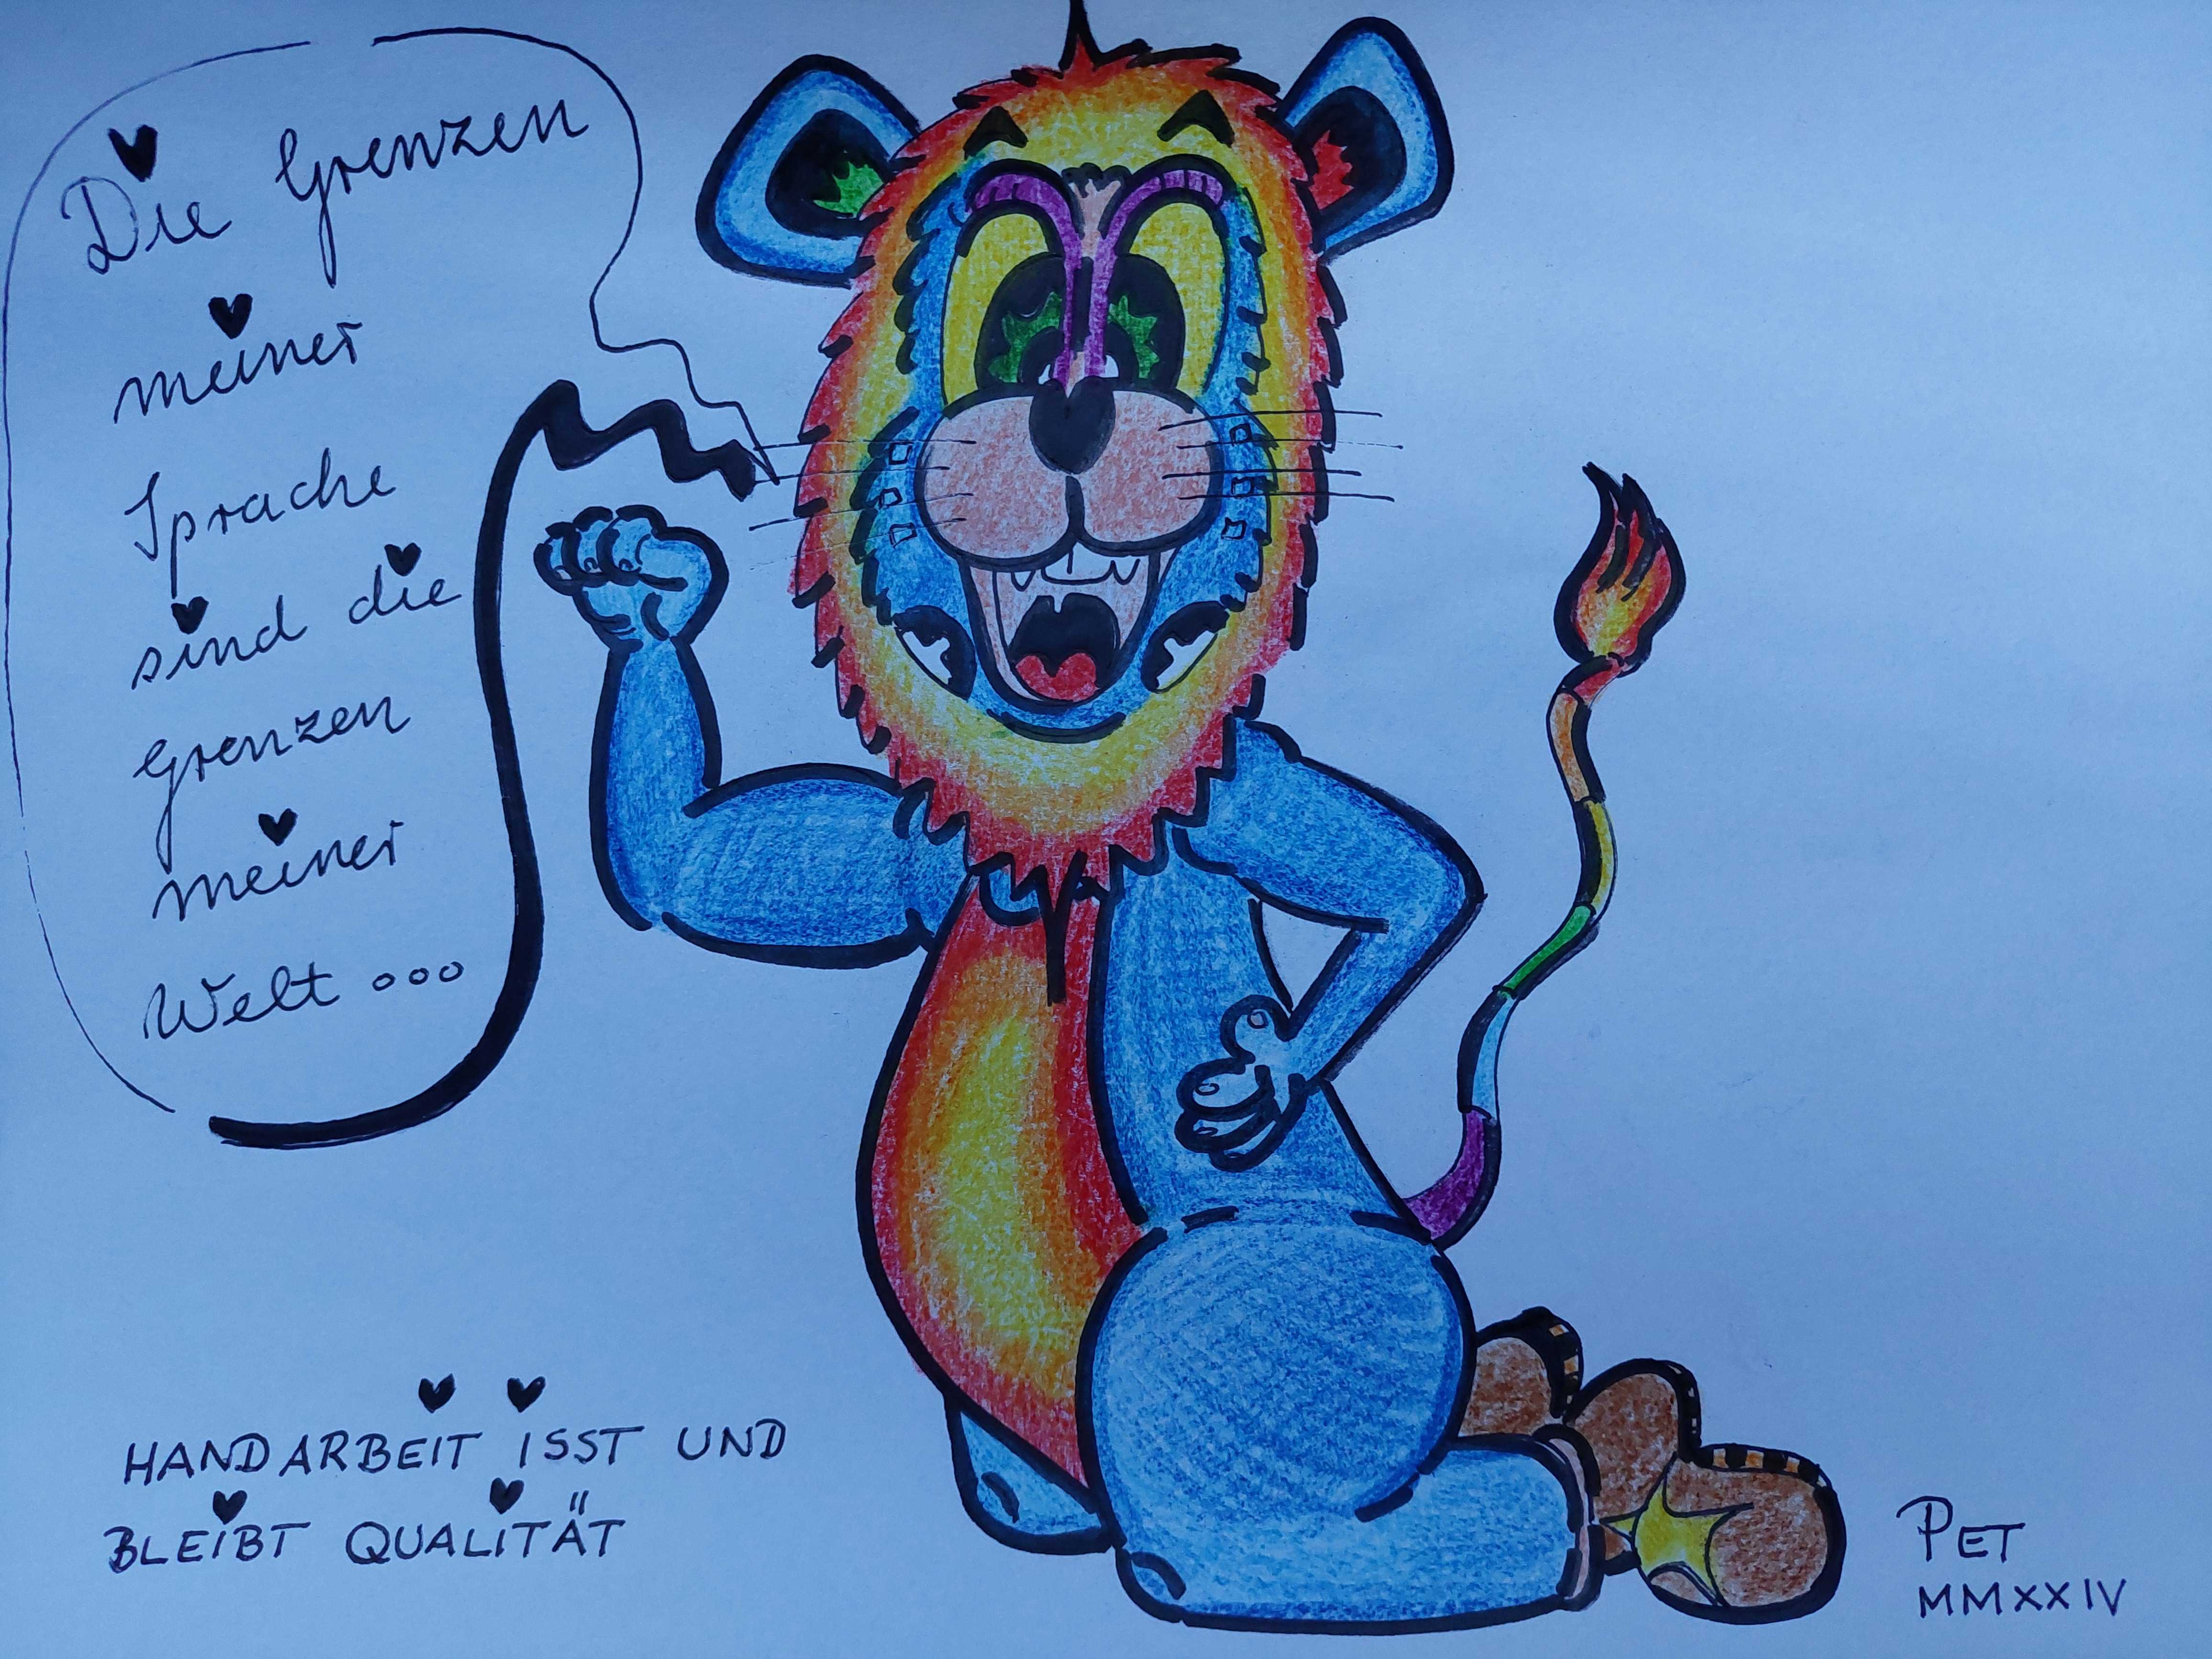 Die Grenzen
meiner
Sprache
sind die
Grenzen
meiner
Welt ...
HANDARBEIT ISST UND
BLEIBT QUALITÄT
PET
MMXXIV